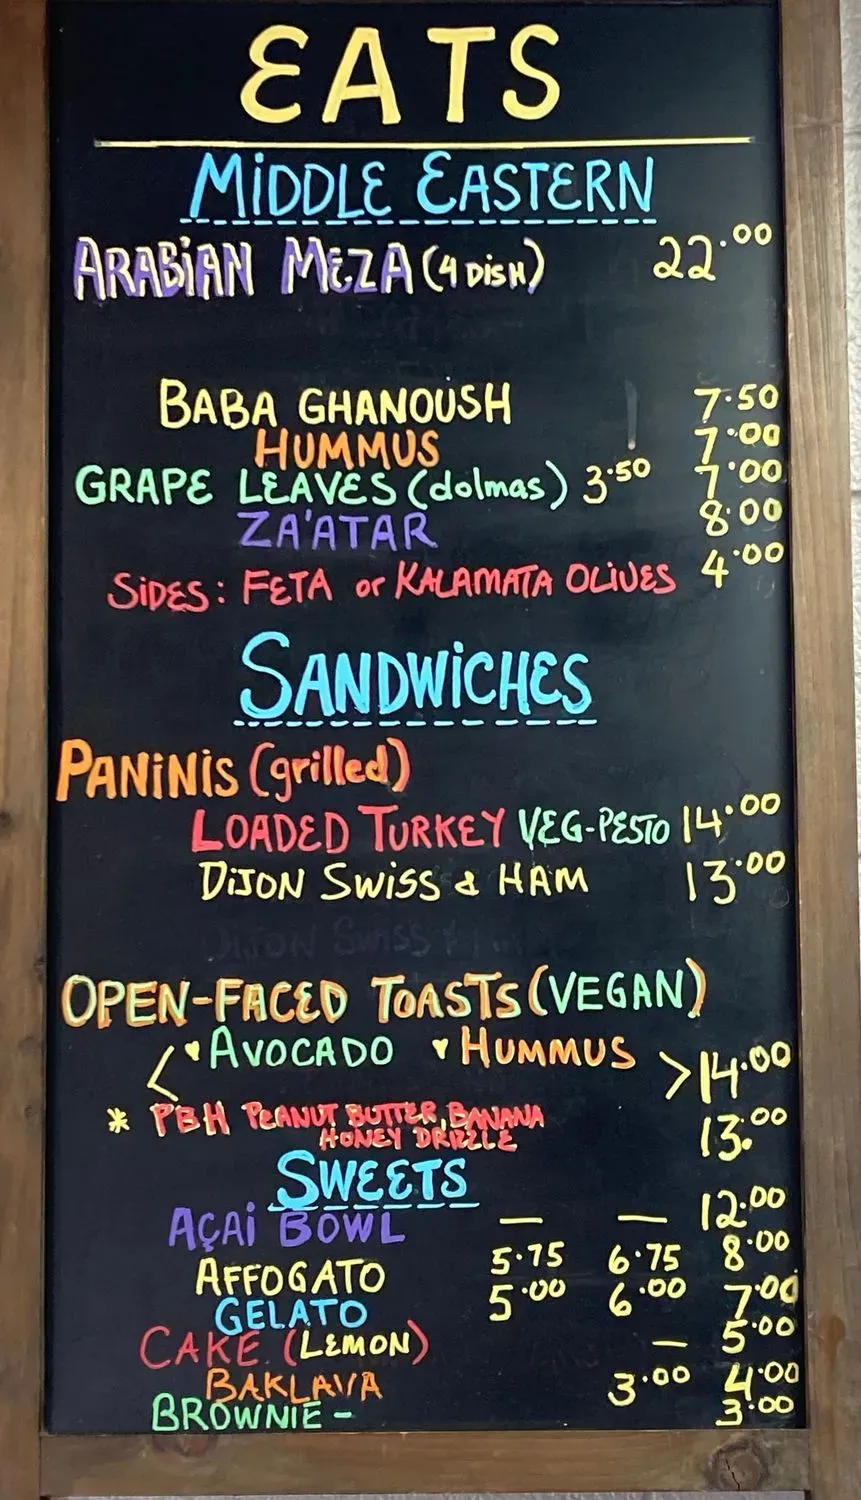 EATS
MiDDLE EASTERN
ARABiAN MEZA (4 DisH) 22.00
BABA GHANOUSH 7.50
HUMMUS 7.00
GRAPE LEAVES (dolmas) 3.50 7.00
ZA'ATAR 8.00
SiDES: FETA or KALAMATA OLiVES 4.00
SANDWiCHES
PANiNiS (grilled)
LOADED TURKEY VEG-PESTO 14.00
DiJON SWiSS & HAM 13.00
DiJON SWiSS
OPEN-FACED TOASTS (VEGAN)
< ♥ AVOCADO ♥ HUMMUS > 14.00
* PBH PEANUT BUTTER, BANANA 13.00
HONEY DRIZZLE
SWEETS
AÇAi BOWL — — 12.00
AFFOGATO 5.75 6.75 8.00
GELATO 5.00 6.00 7.00
CAKE. (LEMON) — 5.00
BAKLAVA 3.00 4.00
BROWNIE - 3.00